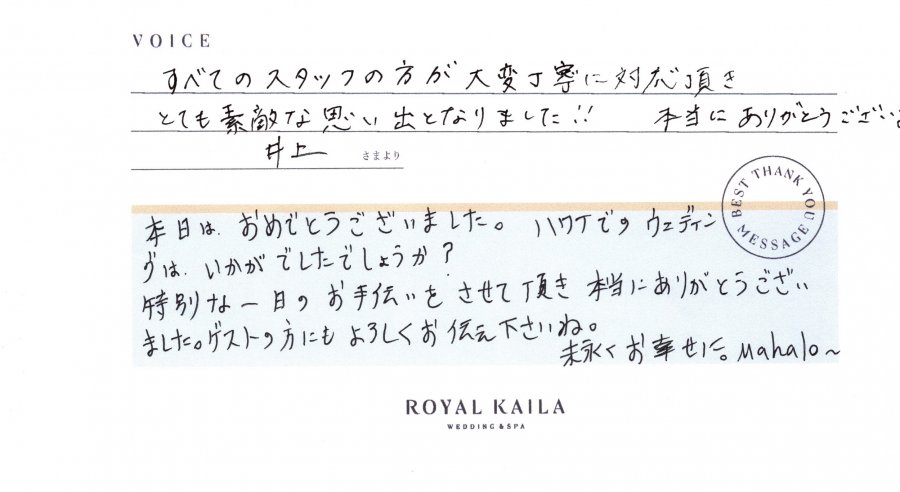 VOICE
すべてのスタッフの方が大変丁寧に対応頂き
とても素敵な思い出となりました!! 本当にありがとうござい
井上 さまより
BEST THANK YOU MESSAGE
本日は、おめでとうございました。 ハワイでのウェディン
グは、いかがでしたでしょうか?
特別な一日のお手伝いをさせて頂き本当にありがとうござい
ました。ゲストの方にもよろしくお伝え下さいね。
末永くお幸せに。Mahalo~
ROYAL KAILA
WEDDING & SPA